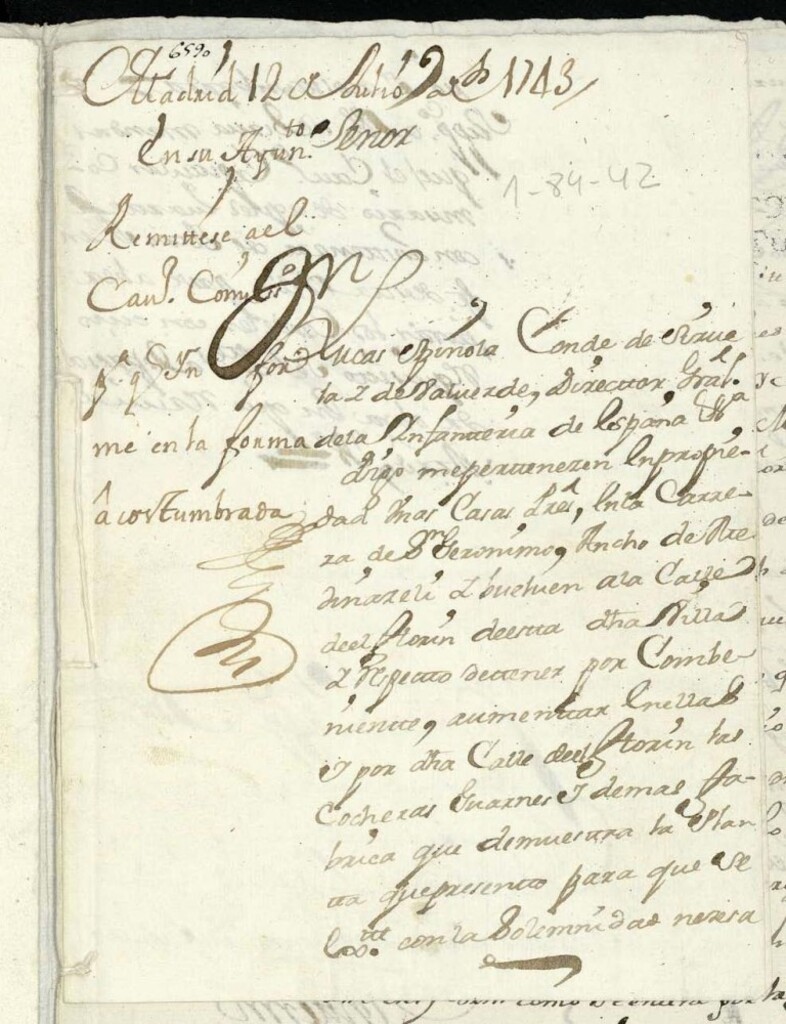 6590
Madrid 12 de Julio de 1743
Señor
En su Ayun.to
1-84-42
Remitese a el
Cav.o Comiss.o
p.a q Ynfor
me en la forma
acostumbrada
Dn Lucas Spinola Conde de Sirue
la y de Valverde, Director Gral.
de la Infanteria de España V.a
digo me pertenezen en propie-
dad unas Casas Prles, en la Carre-
ra de Sn Geronimo, Ancho de
dinazeli y buelven a la Calle
de el Florin de esta dha Villa
y respecto de tener por Combe-
niente, aumentar en ellas
y por dha Calle de el Florin las
Cocheras Guarnes y demas fa-
brica que demuestra la Plan
ta que presento para que se
con la Solemnidad nezesa